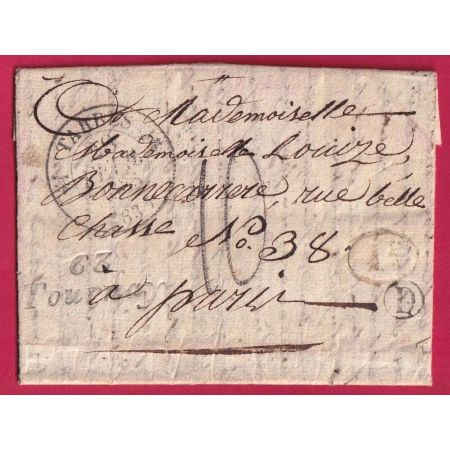 A Mademoiselle
Mademoiselle Louize,
Bonnecarrere, rue belle
Chasse No. 38
à paris
TARBES
10
D